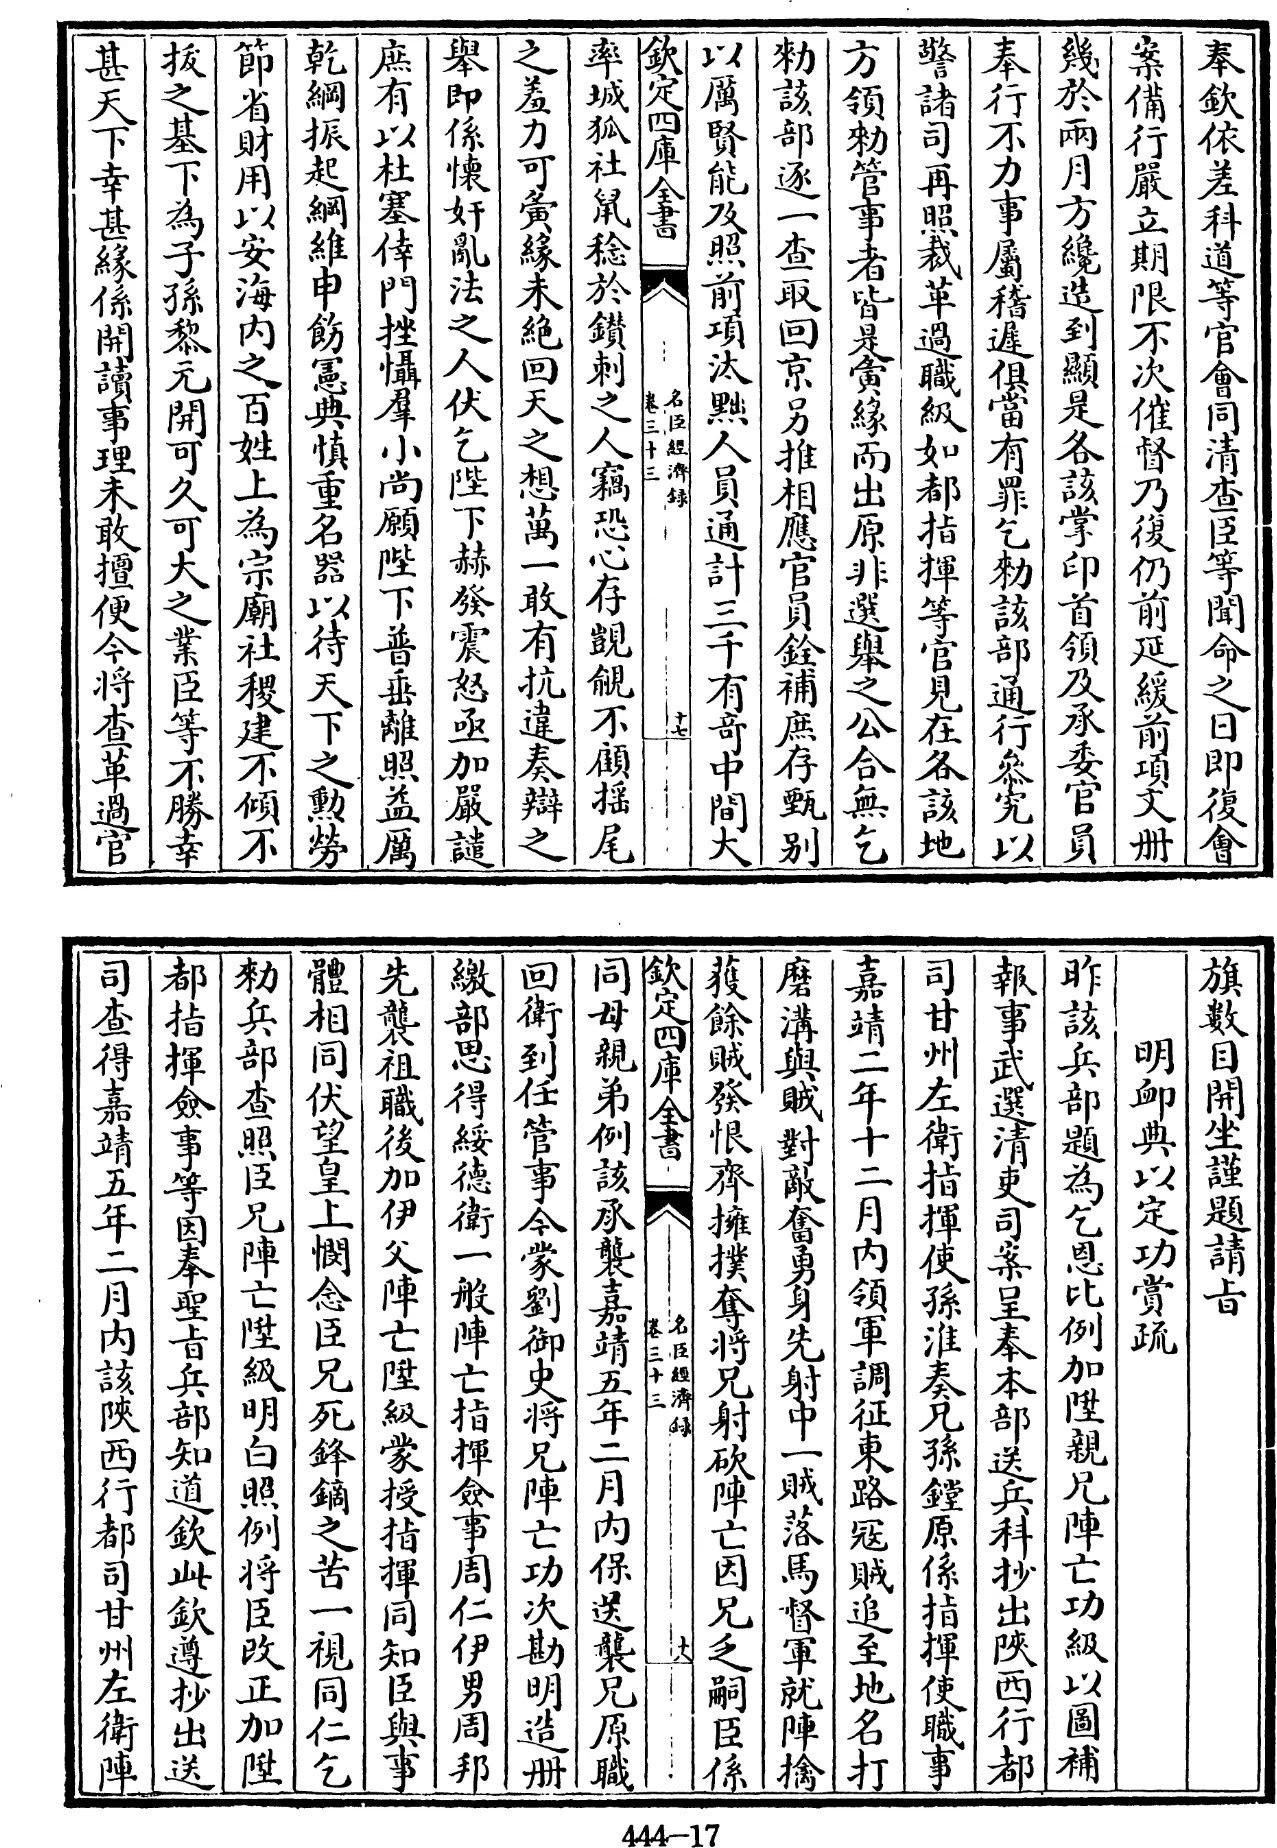 奉欽依差科道等官會同清查臣等聞命之日即復會
案備行嚴立期限不次催督乃復仍前延緩前項文册
幾於兩月方纔造到顯是各該掌印首領及承委官員
奉行不力事屬稽遲俱當有罪乞勑該部通行叅究以
警諸司再照裁革過職級如都指揮等官見在各該地
方領勑管事者皆是夤緣而出原非選舉之公合無乞
勑該部逐一查取回京另推相應官員銓補庶存甄别
以厲賢能及照前項汰黜人員通計三千有竒中間大
欽定四庫全書
名臣經濟録
卷三十三
十七
率城狐社鼠稔於鑚刺之人竊恐心存覬覦不顧揺尾
之羞力可夤緣未絶回天之想萬一敢有抗違奏辯之
舉即係懐奸亂法之人伏乞陛下赫發震怒亟加嚴譴
庶有以杜塞倖門挫懾羣小尚願陛下普垂離照益厲
乾綱振起綱維申飭憲典慎重名器以待天下之勲勞
節省財用以安海内之百姓上為宗廟社稷建不傾不
拔之基下為子孫黎元開可久可大之業臣等不勝幸
甚天下幸甚緣係開讀事理未敢擅便今将查革過官
旗數目開坐謹題請㫖
明䘏典以定功賞疏
昨該兵部題為乞恩比例加陞親兄陣亡功級以圖補
報事武選清吏司案呈奉本部送兵科抄出陜西行都
司甘州左衛指揮使孫淮奏兄孫鏜原係指揮使職事
嘉靖二年十二月内領軍調征東路宼賊追至地名打
磨溝與賊對敵奮勇身先射中一賊落馬督軍就陣擒
獲餘賊發恨齊擁撲奪将兄射砍陣亡因兄乏嗣臣係
欽定四庫全書
名臣經濟録
卷三十三
十八
同母親弟例該承襲嘉靖五年二月内保送襲兄原職
回衛到任管事今蒙劉御史将兄陣亡功次勘明造册
繳部思得綏德衛一般陣亡指揮僉事周仁伊男周邦
先襲祖職後加伊父陣亡陞級蒙授指揮同知臣與事
體相同伏望皇上憫念臣兄死鋒鏑之苦一視同仁乞
勑兵部查照臣兄陣亡陞級明白照例将臣改正加陞
都指揮僉事等因奉聖㫖兵部知道欽此欽遵抄出送
司查得嘉靖五年二月内該陜西行都司甘州左衛陣
444—17